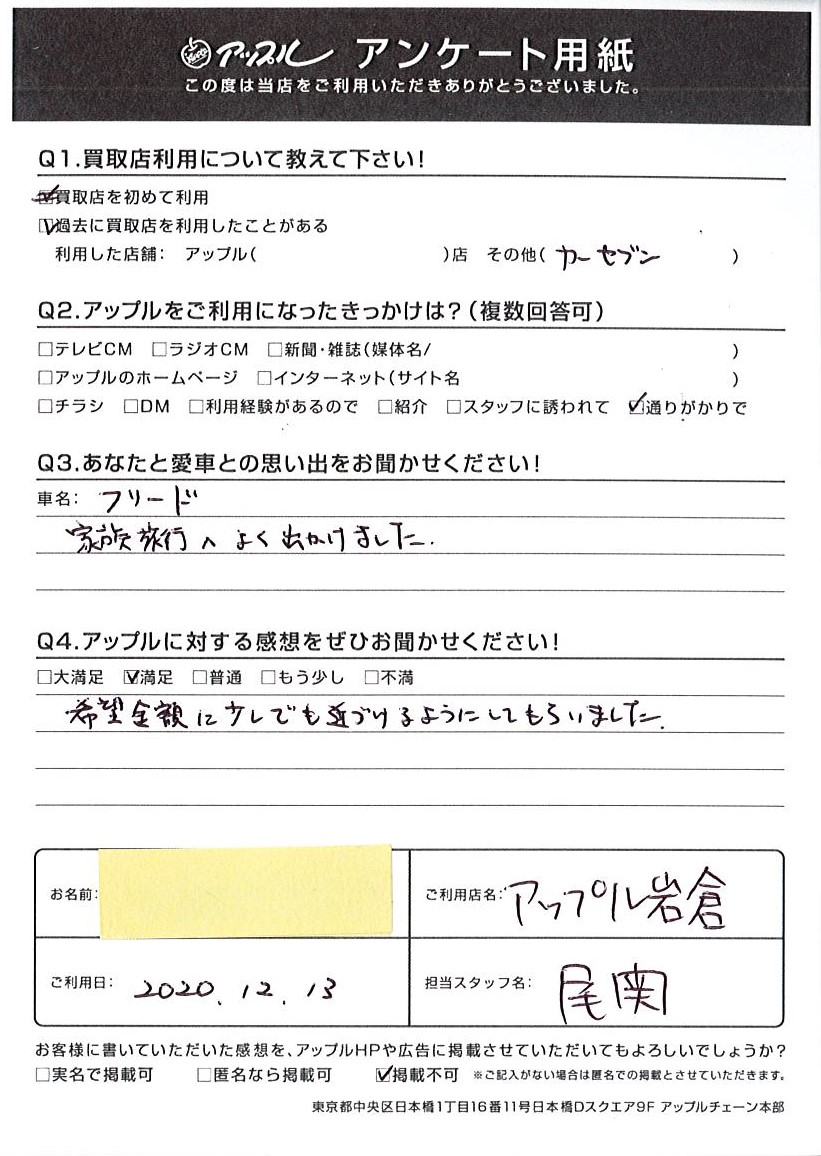 アップル アンケート用紙
この度は当店をご利用いただきありがとうございました。
Q1.買取店利用について教えて下さい!
☑買取店を初めて利用
☑過去に買取店を利用したことがある
利用した店舗: アップル( )店 その他( カーセブン )
Q2.アップルをご利用になったきっかけは?(複数回答可)
□テレビCM □ラジオCM □新聞・雑誌(媒体名/ )
□アップルのホームページ □インターネット(サイト名 )
□チラシ □DM □利用経験があるので □紹介 □スタッフに誘われて ☑通りがかりで
Q3.あなたと愛車との思い出をお聞かせください!
車名: フリード
家族旅行へよく出かけました.
Q4.アップルに対する感想をぜひお聞かせください!
□大満足 ☑満足 □普通 □もう少し □不満
希望金額に少しでも近づけるようにしてもらいました.
お名前: ご利用店名: アップル岩倉
ご利用日: 2020.12.13 担当スタッフ名: 尾関
お客様に書いていただいた感想を、アップルHPや広告に掲載させていただいてもよろしいでしょうか?
□実名で掲載可 □匿名なら掲載可 ☑掲載不可 ※ご記入がない場合は匿名での掲載とさせていただきます。
東京都中央区日本橋1丁目16番11号日本橋Dスクエア9F アップルチェーン本部